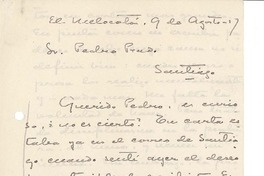 El Melocotón, 9 de Agosto-17
Sr. Pedro Prado
Santiago
Querido Pedro, es curio
so, ¿no es cierto? Tu carta es
taba ya en el correo de Santia
go cuando sentí ayer el deseo